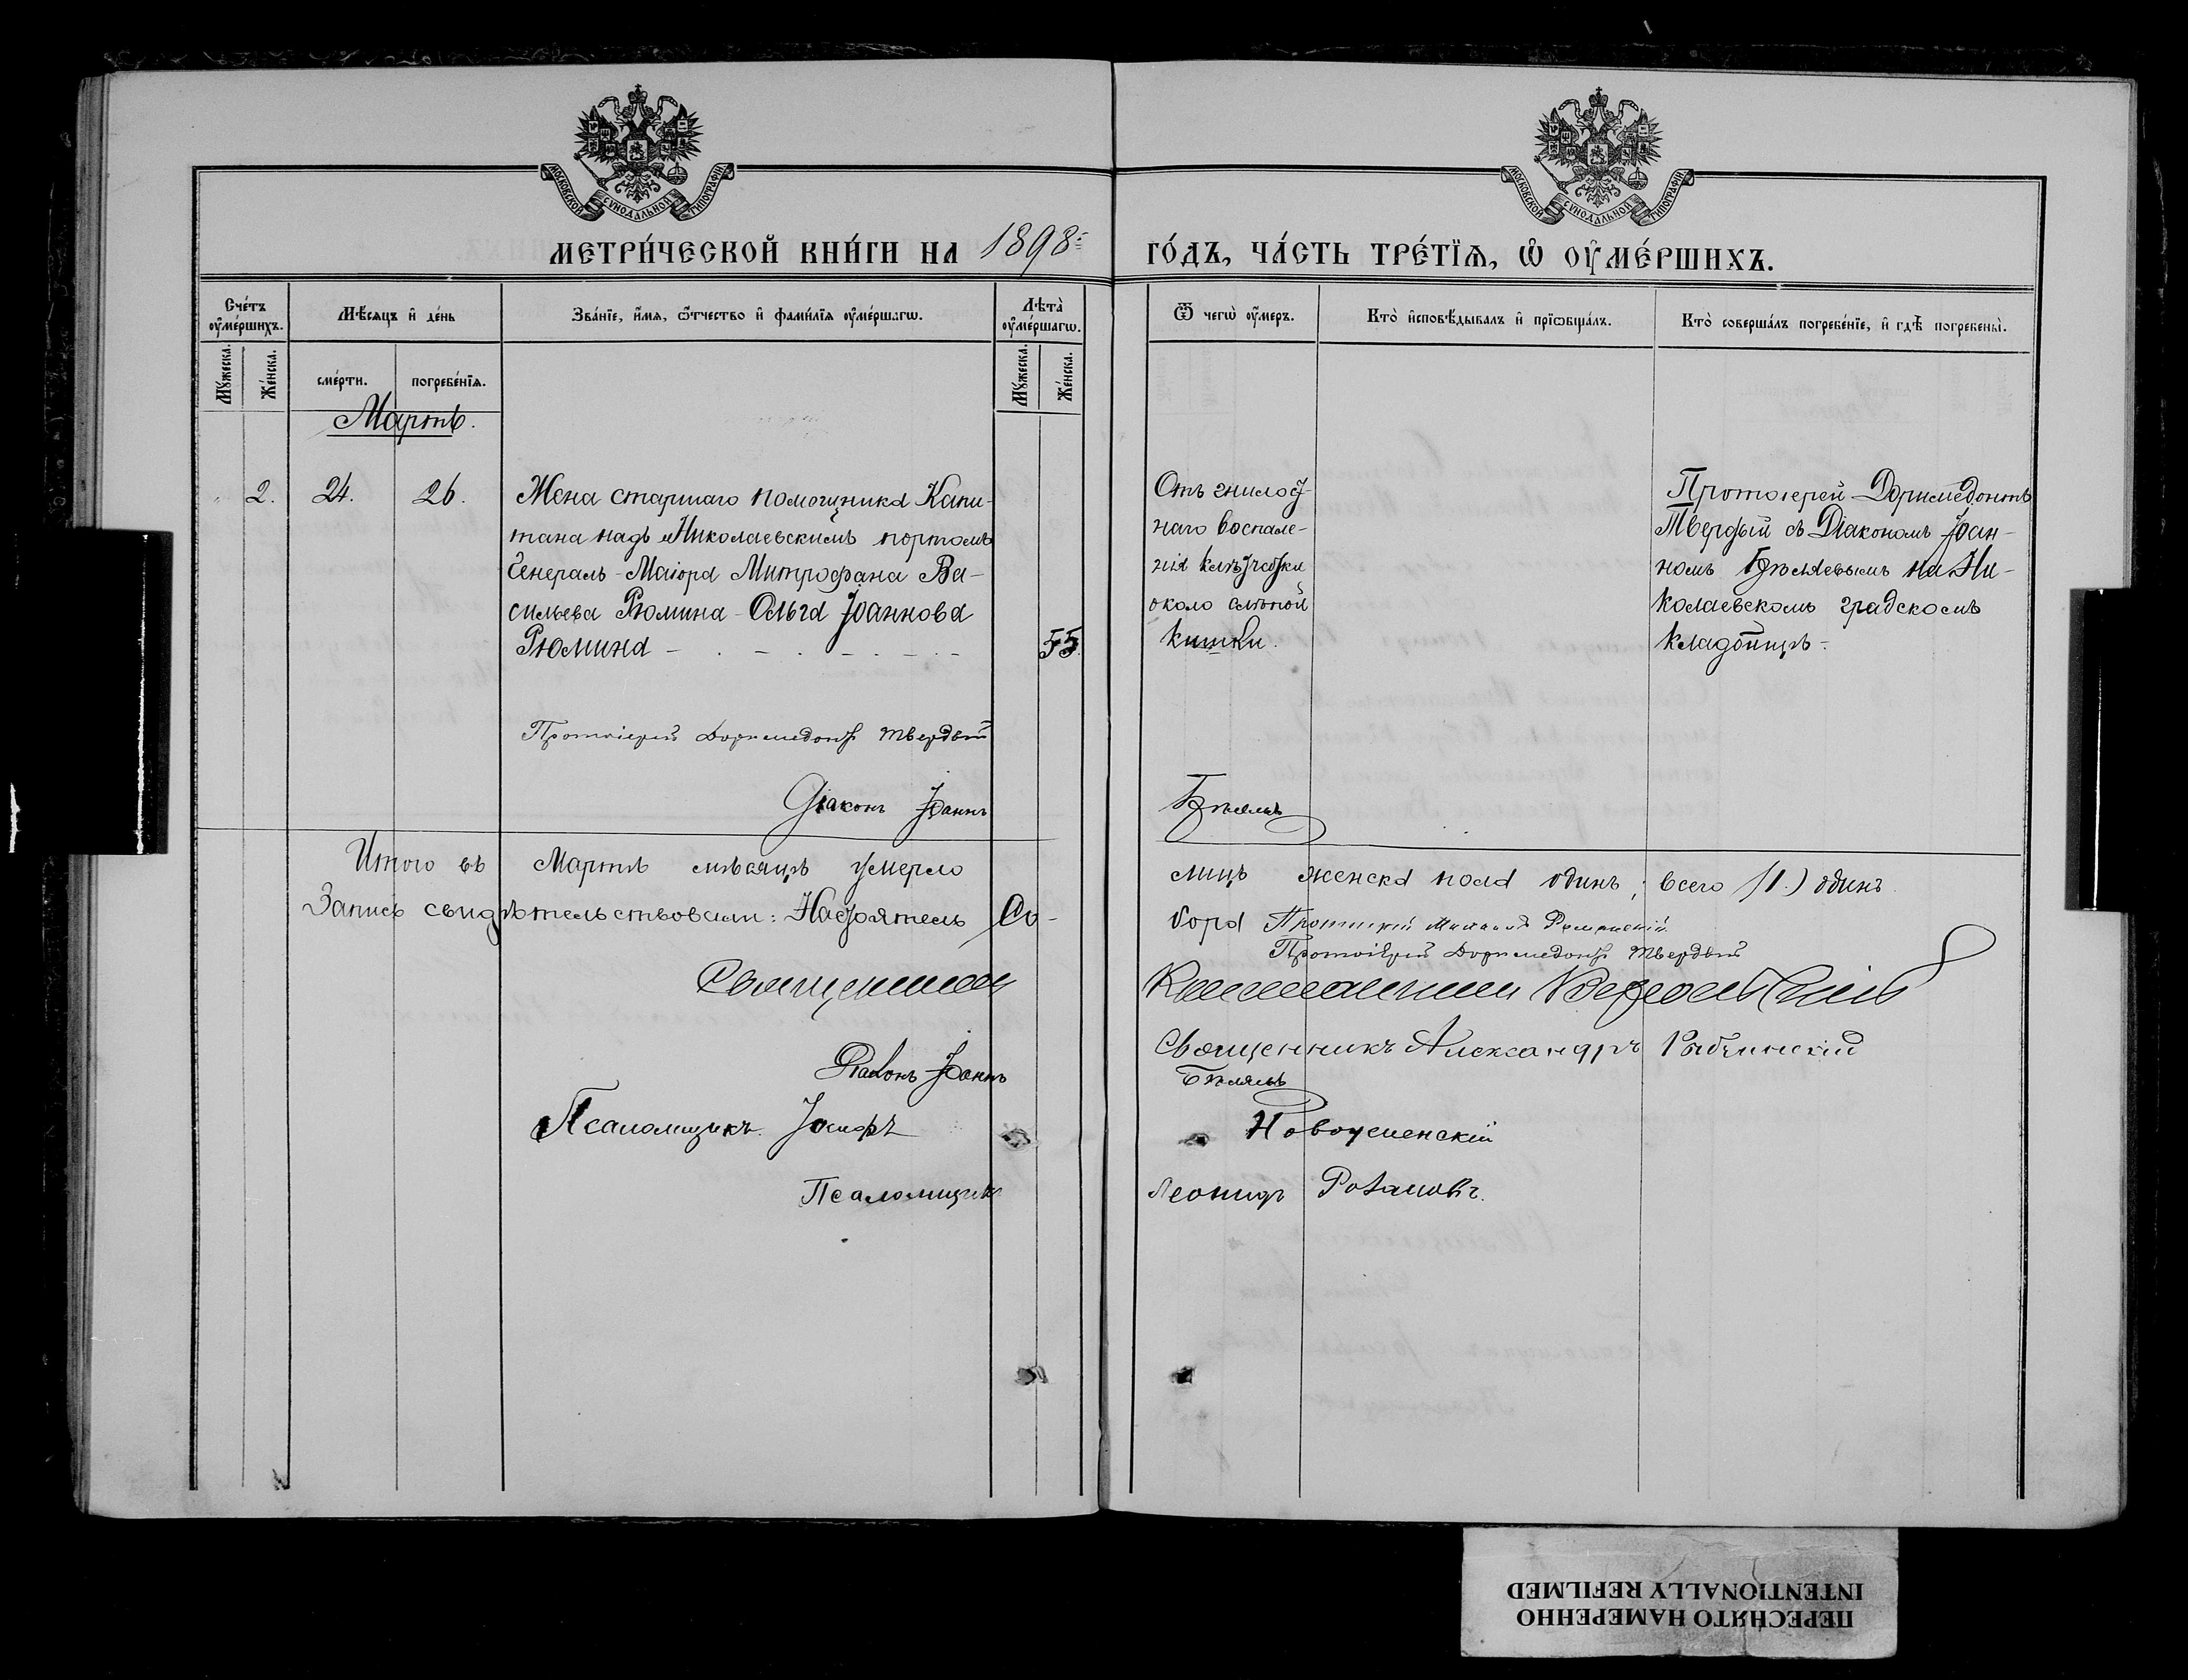 МОСКОВСКОЙ СѴНОДАЛЬНОЙ ТИПОГРАФІИ
МОСКОВСКОЙ СѴНОДАЛЬНОЙ ТИПОГРАФІИ
МЕТРИ́ЧЕСКОЙ КНИ́ГИ НА 1898 ГО́ДЪ, ЧА́СТЬ ТРЕ́ТЇѦ, Ѡ҆ ОУ҆МЕ́РШИХЪ.
Сче́тъ оу҆ме́ршихъ.
Мꙋ́жеска.
Же́нска.
Мѣ́сяцъ и҆ де́нь
сме́рти.
погребе́нїѧ.
Зва́нїе, и҆́мѧ, ѻ҆́тчество и҆ фами́лїѧ оу҆ме́ршагѡ.
Лѣ́та оу҆ме́ршагѡ.
Мꙋ́жеска.
Же́нска.
Ѿ чегѡ̀ оу҆́меръ.
Кто̀ и҆сповѣ́дывалъ и҆ прїѡбща́лъ.
Кто̀ соверша́лъ погребе́нїе, и҆ гдѣ̀ погребены̀.
Мартъ.
2. 24. 26.
Жена старшаго помощника Капи-
тана надъ Николаевскимъ портомъ
Генералъ-Маіора Митрофана Ва-
сильева Рюмина - Ольга Іоаннова
Рюмина - . - . - . - . -
55.
Отъ гнилост-
наго воспале-
нія клѣтчатки
около слѣпой
кишки.
Протоіерей Доримедонтъ
Твердый съ Діакономъ Іоан-
номъ Бѣляевымъ на Ни-
колаевскомъ градскомъ
кладбищѣ.
Протоіерей Доримедонтъ Твердый
Діаконъ Іоаннъ Бѣляевъ
Итого въ Мартѣ мѣсяцѣ умерло лицъ женска пола одинъ; всего (1.) одинъ.
Запись свидѣтельствовали: Настоятель Со-
бора Протоіерей
Протоіерей Доримедонтъ Твердый
Священникъ
Священникъ Александръ Рыбчинскій
Діаконъ Іоаннъ Бѣляевъ
Псаломщикъ Іосифъ
Псаломщикъ Леонидъ Розановъ.
ПЕРЕСНЯТО НАМЕРЕННО
INTENTIONALLY REFILMED